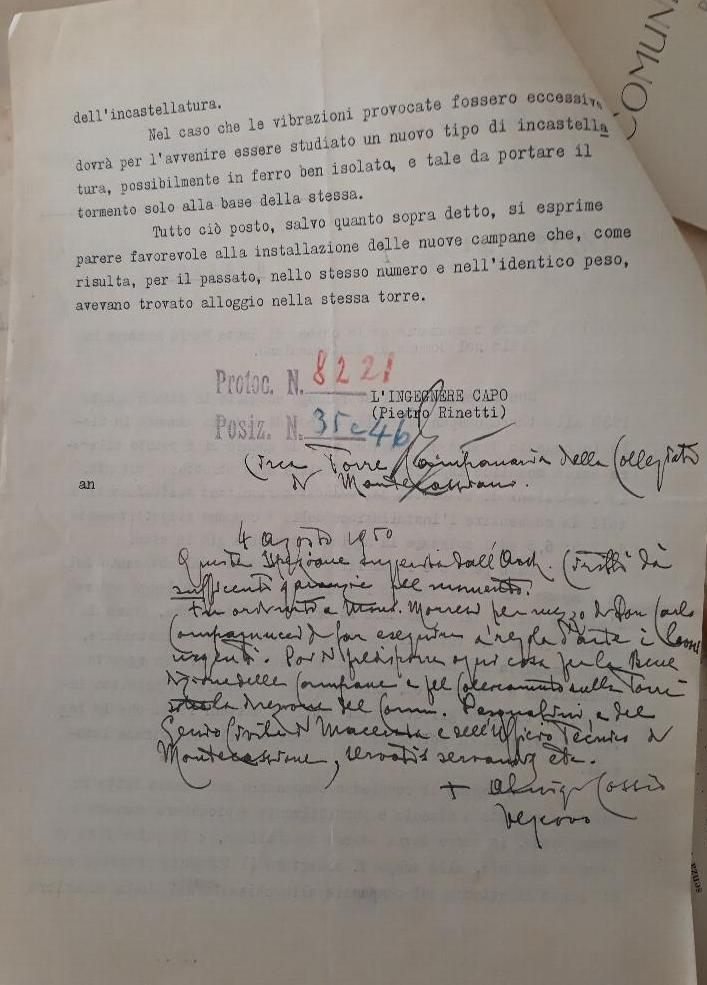 COMUN
dell'incastellatura.
Nel caso che le vibrazioni provocate fossero eccessive
dovrà per l'avvenire essere studiato un nuovo tipo di incastella
tura, possibilmente in ferro ben isolata, e tale da portare il
tormento solo alla base della stessa.
Tutto ciò posto, salvo quanto sopra detto, si esprime
parere favorevole alla installazione delle nuove campane che, come
risulta, per il passato, nello stesso numero e nell'identico peso,
avevano trovato alloggio nella stessa torre.
Protoc. N. 8221
L'INGEGNERE CAPO
(Pietro Rinetti)
Posiz. N. 35c46
Circa Torre Campanaria della Collegiata
di Montecassiano.
an
4 agosto 1950
Questa Ispezione suggerita dall'Arch. dà
sufficenti garanzie pel momento.
ordinato a Mons. per mezzo di Don Carlo
Compagnucci di far eseguire a regola d'arte i lavori
urgenti. Poi si predispone ogni cosa per la Bene
dizione delle Campane e pel Collocamento sulla Torre
la direzione del Comm. Pasqualini, e del
Genio Civile di Macerata e dell'Ufficio Tecnico di
Montecassiano, servatis servandis etc.
+ Cassio
Vescovo
senza